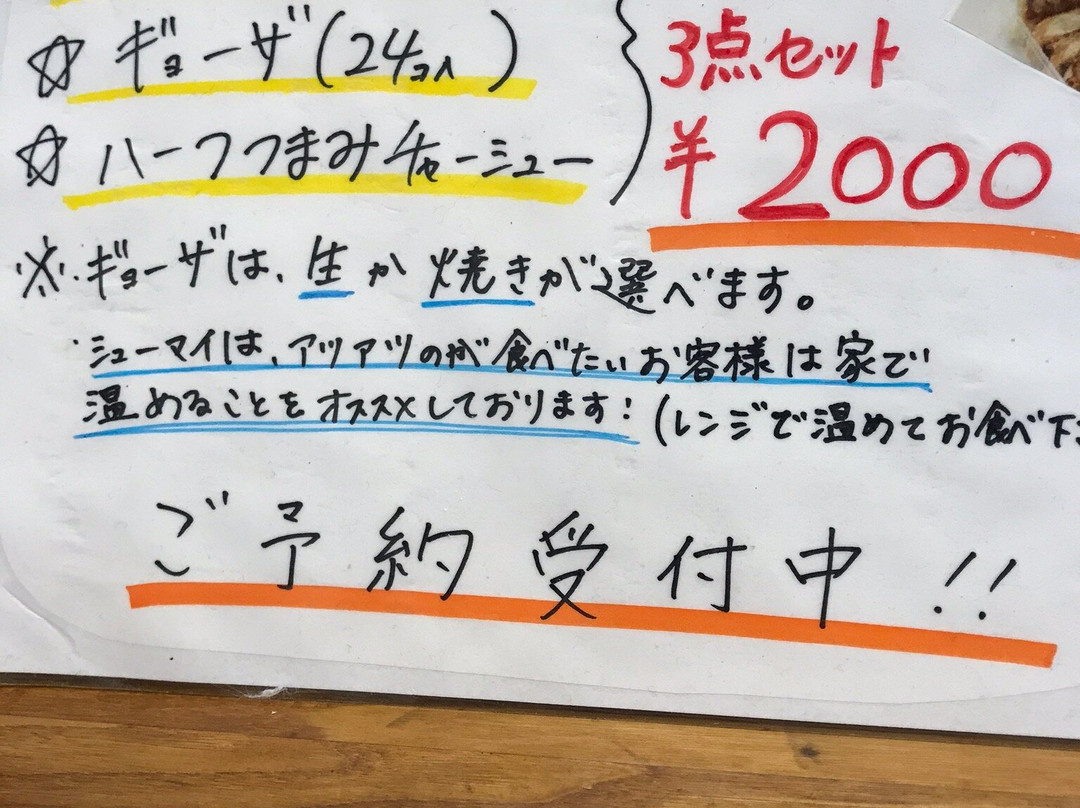 ☆ ギョーザ(24コ入)
☆ ハーフつまみチャーシュー
3点セット
¥2000
※ギョーザは、生か焼きが選べます。
・シューマイは、アツアツのが食べたいお客様は家で
温めることをオススメしております!(レンジで温めてお食べ下
ご予約受付中!!